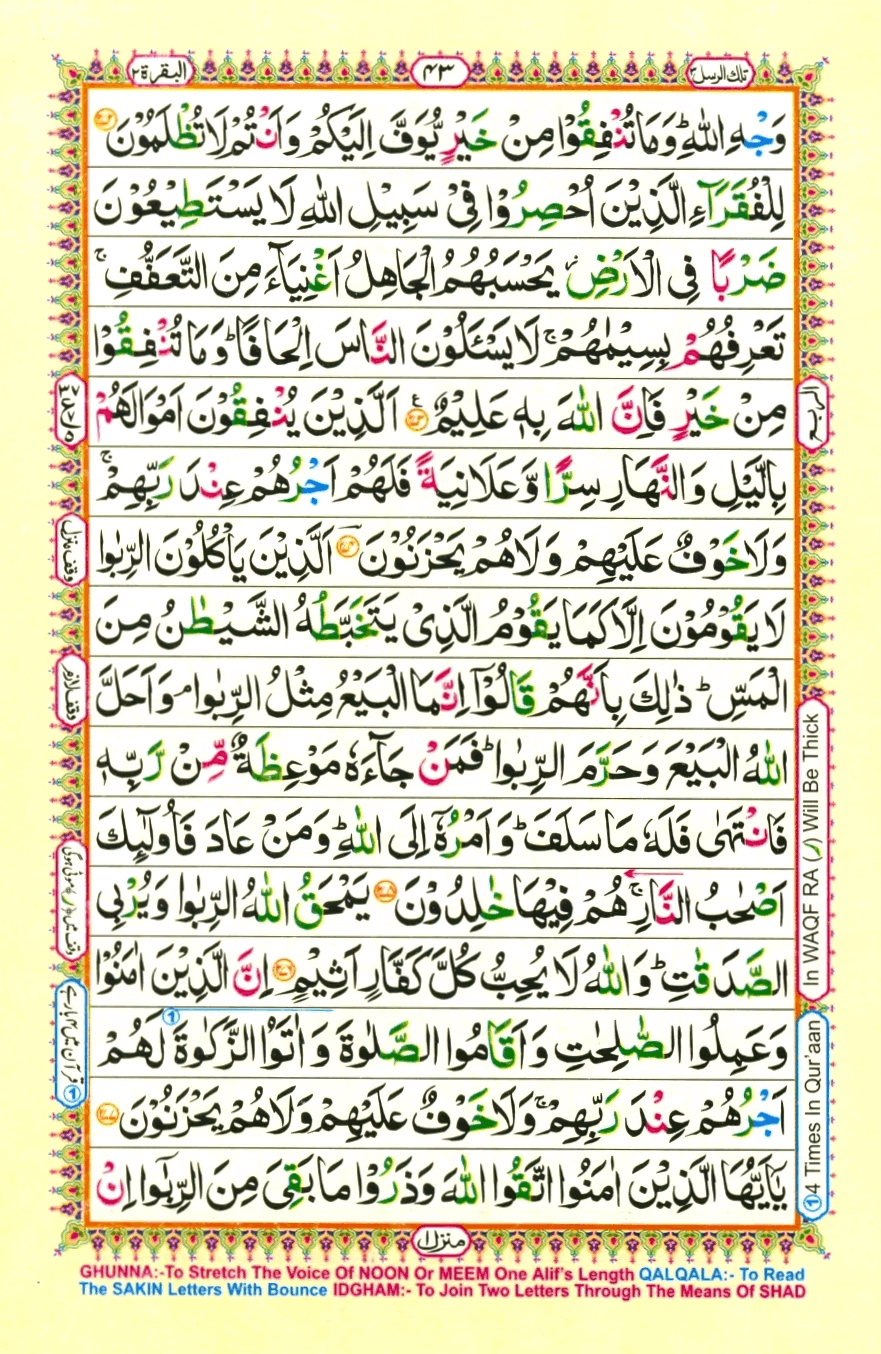 تلك الرسل ٣
٤٣
البقرة ٢
وَجْهِ اللّٰهِ ؕ وَمَا تُنْفِقُوْا مِنْ خَيْرٍ يُّوَفَّ اِلَيْكُمْ وَاَنْتُمْ لَا تُظْلَمُوْنَ ﴿۲۷۲﴾
لِلْفُقَرَآءِ الَّذِيْنَ اُحْصِرُوْا فِىْ سَبِيْلِ اللّٰهِ لَا يَسْتَطِيْعُوْنَ
ضَرْبًا فِى الْاَرْضِ ز يَحْسَبُهُمُ الْجَاهِلُ اَغْنِيَآءَ مِنَ التَّعَفُّفِ ۚ
تَعْرِفُهُمْ بِسِيْمٰهُمْ ۚ لَا يَسْـَٔلُوْنَ النَّاسَ اِلْحَافًا ؕ وَمَا تُنْفِقُوْا
مِنْ خَيْرٍ فَاِنَّ اللّٰهَ بِهٖ عَلِيْمٌ ﴿۲۷۳﴾ اَلَّذِيْنَ يُنْفِقُوْنَ اَمْوَالَهُمْ
بِالَّيْلِ وَالنَّهَارِ سِرًّا وَّعَلَانِيَةً فَلَهُمْ اَجْرُهُمْ عِنْدَ رَبِّهِمْ ۚ
وَلَا خَوْفٌ عَلَيْهِمْ وَلَا هُمْ يَحْزَنُوْنَ ﴿۲۷۴﴾ اَلَّذِيْنَ يَاْكُلُوْنَ الرِّبٰوا
لَا يَقُوْمُوْنَ اِلَّا كَمَا يَقُوْمُ الَّذِىْ يَتَخَبَّطُهُ الشَّيْطٰنُ مِنَ
الْمَسِّ ؕ ذٰلِكَ بِاَنَّهُمْ قَالُوْٓا اِنَّمَا الْبَيْعُ مِثْلُ الرِّبٰوا ۘ وَاَحَلَّ
اللّٰهُ الْبَيْعَ وَحَرَّمَ الرِّبٰوا ؕ فَمَنْ جَآءَهٗ مَوْعِظَةٌ مِّنْ رَّبِّهٖ
فَانْتَهٰى فَلَهٗ مَا سَلَفَ ؕ وَاَمْرُهٗٓ اِلَى اللّٰهِ ؕ وَمَنْ عَادَ فَاُولٰٓئِكَ
اَصْحٰبُ النَّارِ ۚ هُمْ فِيْهَا خٰلِدُوْنَ ﴿۲۷۵﴾ يَمْحَقُ اللّٰهُ الرِّبٰوا وَيُرْبِى
الصَّدَقٰتِ ؕ وَاللّٰهُ لَا يُحِبُّ كُلَّ كَفَّارٍ اَثِيْمٍ ﴿۲۷۶﴾ اِنَّ الَّذِيْنَ اٰمَنُوْا
وَعَمِلُوا الصّٰلِحٰتِ وَاَقَامُوا الصَّلٰوةَ وَاٰتَوُا الزَّكٰوةَ لَهُمْ
اَجْرُهُمْ عِنْدَ رَبِّهِمْ ۚ وَلَا خَوْفٌ عَلَيْهِمْ وَلَا هُمْ يَحْزَنُوْنَ ﴿۲۷۷﴾
يٰٓاَيُّهَا الَّذِيْنَ اٰمَنُوا اتَّقُوا اللّٰهَ وَذَرُوْا مَا بَقِىَ مِنَ الرِّبٰٓوا اِنْ
الربع
In WAQF RA (ر) Will Be Thick
① 4 Times In Qur'aan
وقف منزل
وقف لازم
وقف میں (ر) موٹی ہوگی
منزل ۱
GHUNNA:-To Stretch The Voice Of NOON Or MEEM One Alif's Length QALQALA:- To Read
The SAKIN Letters With Bounce IDGHAM:- To Join Two Letters Through The Means Of SHAD